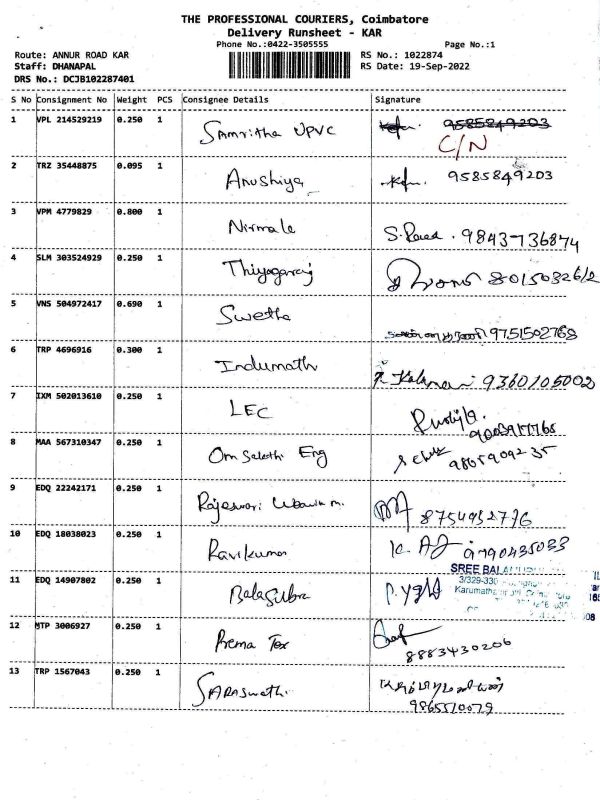 THE PROFESSIONAL COURIERS, Coimbatore
Delivery Runsheet - KAR
Phone No.:0422-3505555 Page No.:1
Route: ANNUR ROAD KAR RS No.: 1022874
Staff: DHANAPAL RS Date: 19-Sep-2022
DRS No.: DCJB102287401
S No Consignment No Weight PCS Consignee Details Signature
1 VPL 214529219 0.250 1 Samritha UPVC 9585849203
C/N
2 TRZ 35448875 0.095 1 Anushiya 9585849203
3 VPM 4779829 0.800 1 Nirmala 9843736874
4 SLM 303524929 0.250 1 Thiyagaraj 8015032612
5 VNS 504972417 0.690 1 Swetha 9751502768
6 TRP 4696916 0.300 1 Indumathi 9360105002
7 IXM 502013610 0.250 1 LEC
8 MAA 567310347 0.250 1 Om Sakthi Eng
9 EDQ 22242171 0.250 1 Rajeswari 8754932776
10 EDQ 18038023 0.250 1 Ravikumar 9790435033
SREE
3/329-330
11 EDQ 14907802 0.250 1 Balasubra
12 MTP 3006927 0.250 1 Prema Tex
8883430206
13 TRP 1567043 0.250 1 Saraswathi
9865510079